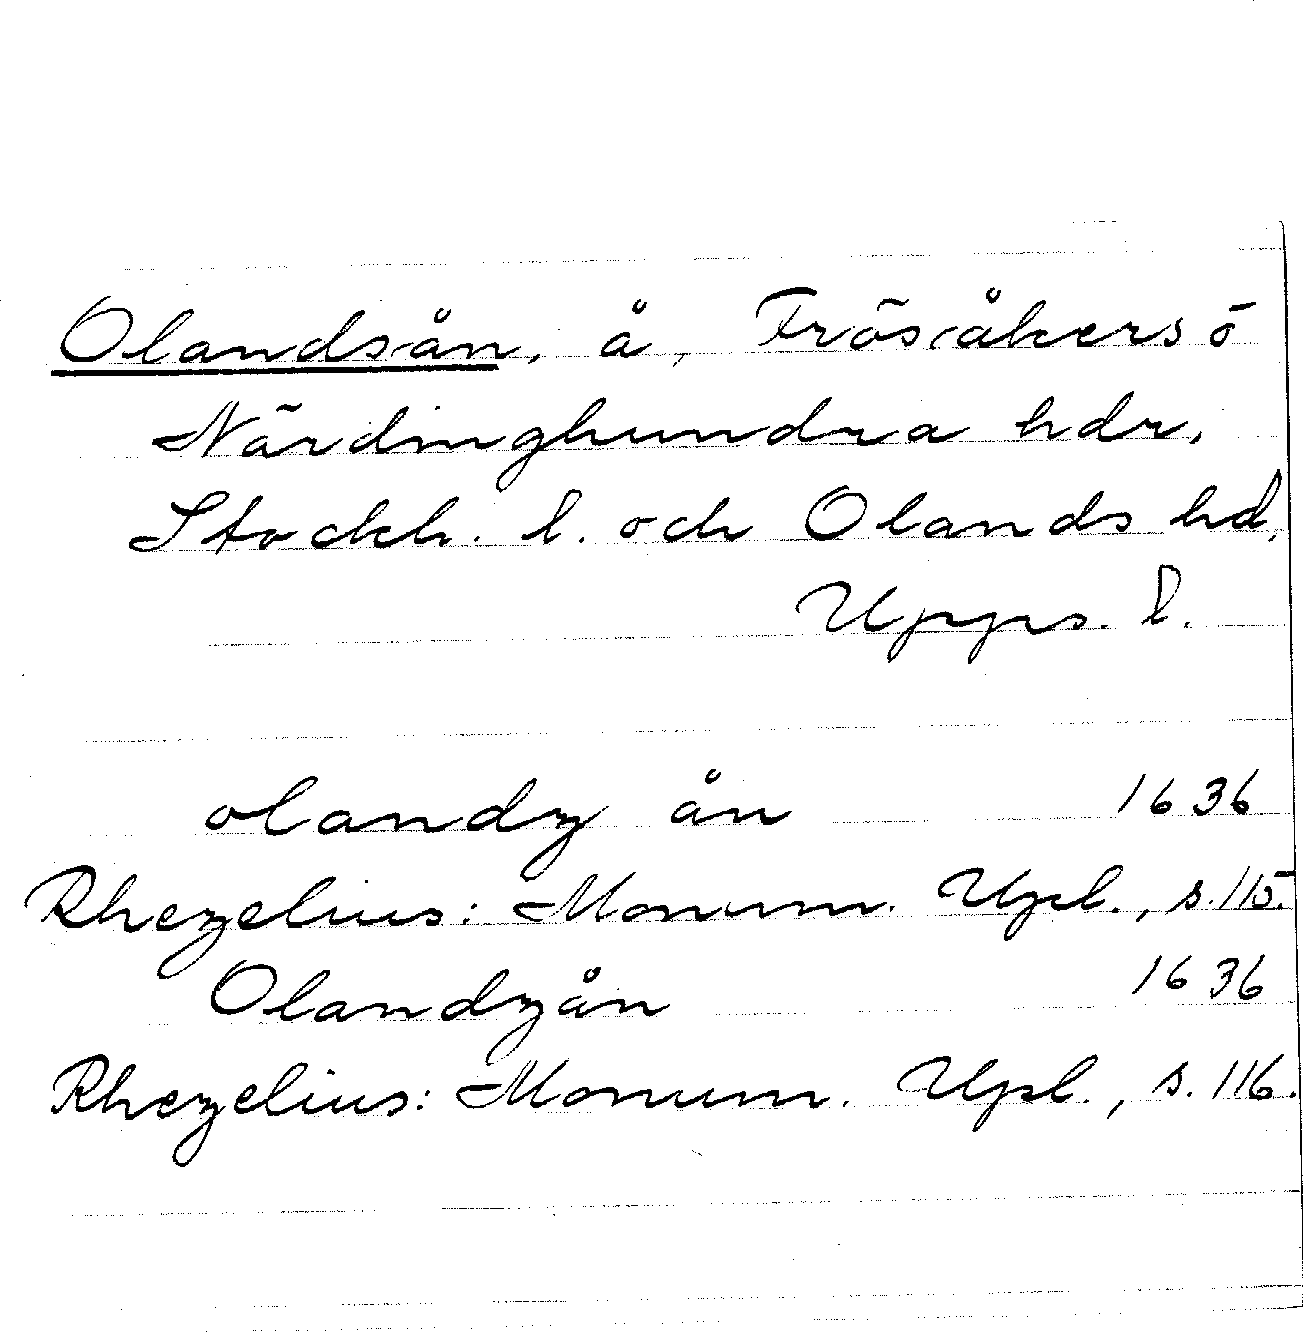 Olandsån, å, Frösåkers o
Närdinghundra hdr,
Stockh. l. och Olands hd,
Upps. l.
olandz ån 1636
Rhezelius: Monum. Upl., s. 115.
Olandzån 1636
Rhezelius: Monum. Upl., s. 116.